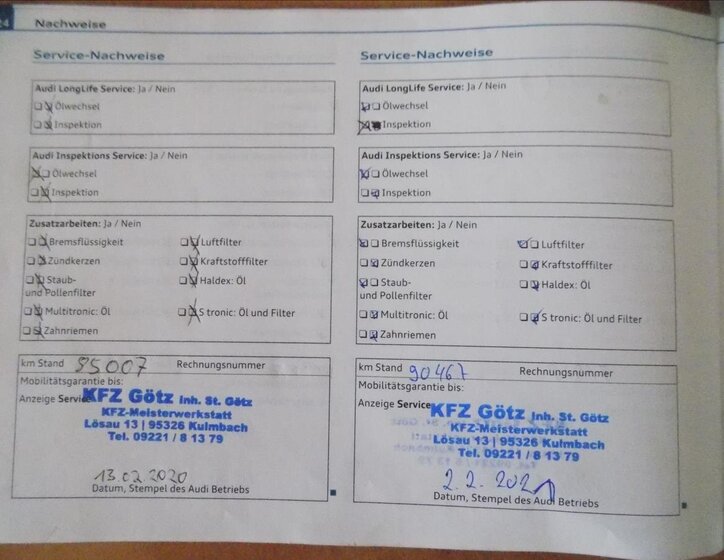 24 Nachweise
Service-Nachweise
Audi LongLife Service: Ja / Nein
Ölwechsel
Inspektion
Audi Inspektions Service: Ja / Nein
Ölwechsel
Inspektion
Zusatzarbeiten: Ja / Nein
Bremsflüssigkeit
Luftfilter
Zündkerzen
Kraftstofffilter
Staub-
und Pollenfilter
Haldex: Öl
Multitronic: Öl
S tronic: Öl und Filter
Zahnriemen
km Stand 85007 Rechnungsnummer
Mobilitätsgarantie bis:
Anzeige Service
KFZ Götz Inh. St. Götz
KFZ-Meisterwerkstatt
Lösau 13 | 95326 Kulmbach
Tel. 09221 / 8 13 79
13.02.2020
Datum, Stempel des Audi Betriebs
Service-Nachweise
Audi LongLife Service: Ja / Nein
Ölwechsel
Inspektion
Audi Inspektions Service: Ja / Nein
Ölwechsel
Inspektion
Zusatzarbeiten: Ja / Nein
Bremsflüssigkeit
Luftfilter
Zündkerzen
Kraftstofffilter
Staub-
und Pollenfilter
Haldex: Öl
Multitronic: Öl
S tronic: Öl und Filter
Zahnriemen
km Stand 90467 Rechnungsnummer
Mobilitätsgarantie bis:
Anzeige Service
KFZ Götz Inh. St. Götz
KFZ-Meisterwerkstatt
Lösau 13 | 95326 Kulmbach
Tel. 09221 / 8 13 79
2.2.2021
Datum, Stempel des Audi Betriebs